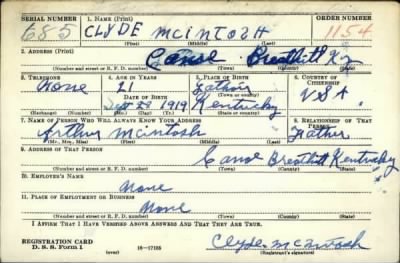 SERIAL NUMBER 1. NAME (Print) ORDER NUMBER
685 CLYDE MCINTOSH 1154
(First) (Middle) (Last)
2. ADDRESS (Print)
Canoe Breathitt Ky
(Number and street or R. F. D. number) (Town) (County) (State)
3. TELEPHONE 4. AGE IN YEARS 5. PLACE OF BIRTH 6. COUNTRY OF CITIZENSHIP
None 21
DATE OF BIRTH (Town or county)
1919 Kentucky U S A
(Exchange) (Number) (Mo.) (Day) (Yr.) (State or country)
7. NAME OF PERSON WHO WILL ALWAYS KNOW YOUR ADDRESS 8. RELATIONSHIP OF THAT PERSON
Arthur McIntosh Father
(Mr., Mrs., Miss) (First) (Middle) (Last)
9. ADDRESS OF THAT PERSON
Canoe Breathitt Kentucky
(Number and street or R. F. D. number) (Town) (County) (State)
10. EMPLOYER'S NAME
None
11. PLACE OF EMPLOYMENT OR BUSINESS
None
(Number and street or R. F. D. number) (Town) (County) (State)
I AFFIRM THAT I HAVE VERIFIED ABOVE ANSWERS AND THAT THEY ARE TRUE.
REGISTRATION CARD
D. S. S. Form 1 (over) 16—17105 Clyde McIntosh
(Registrant's signature)